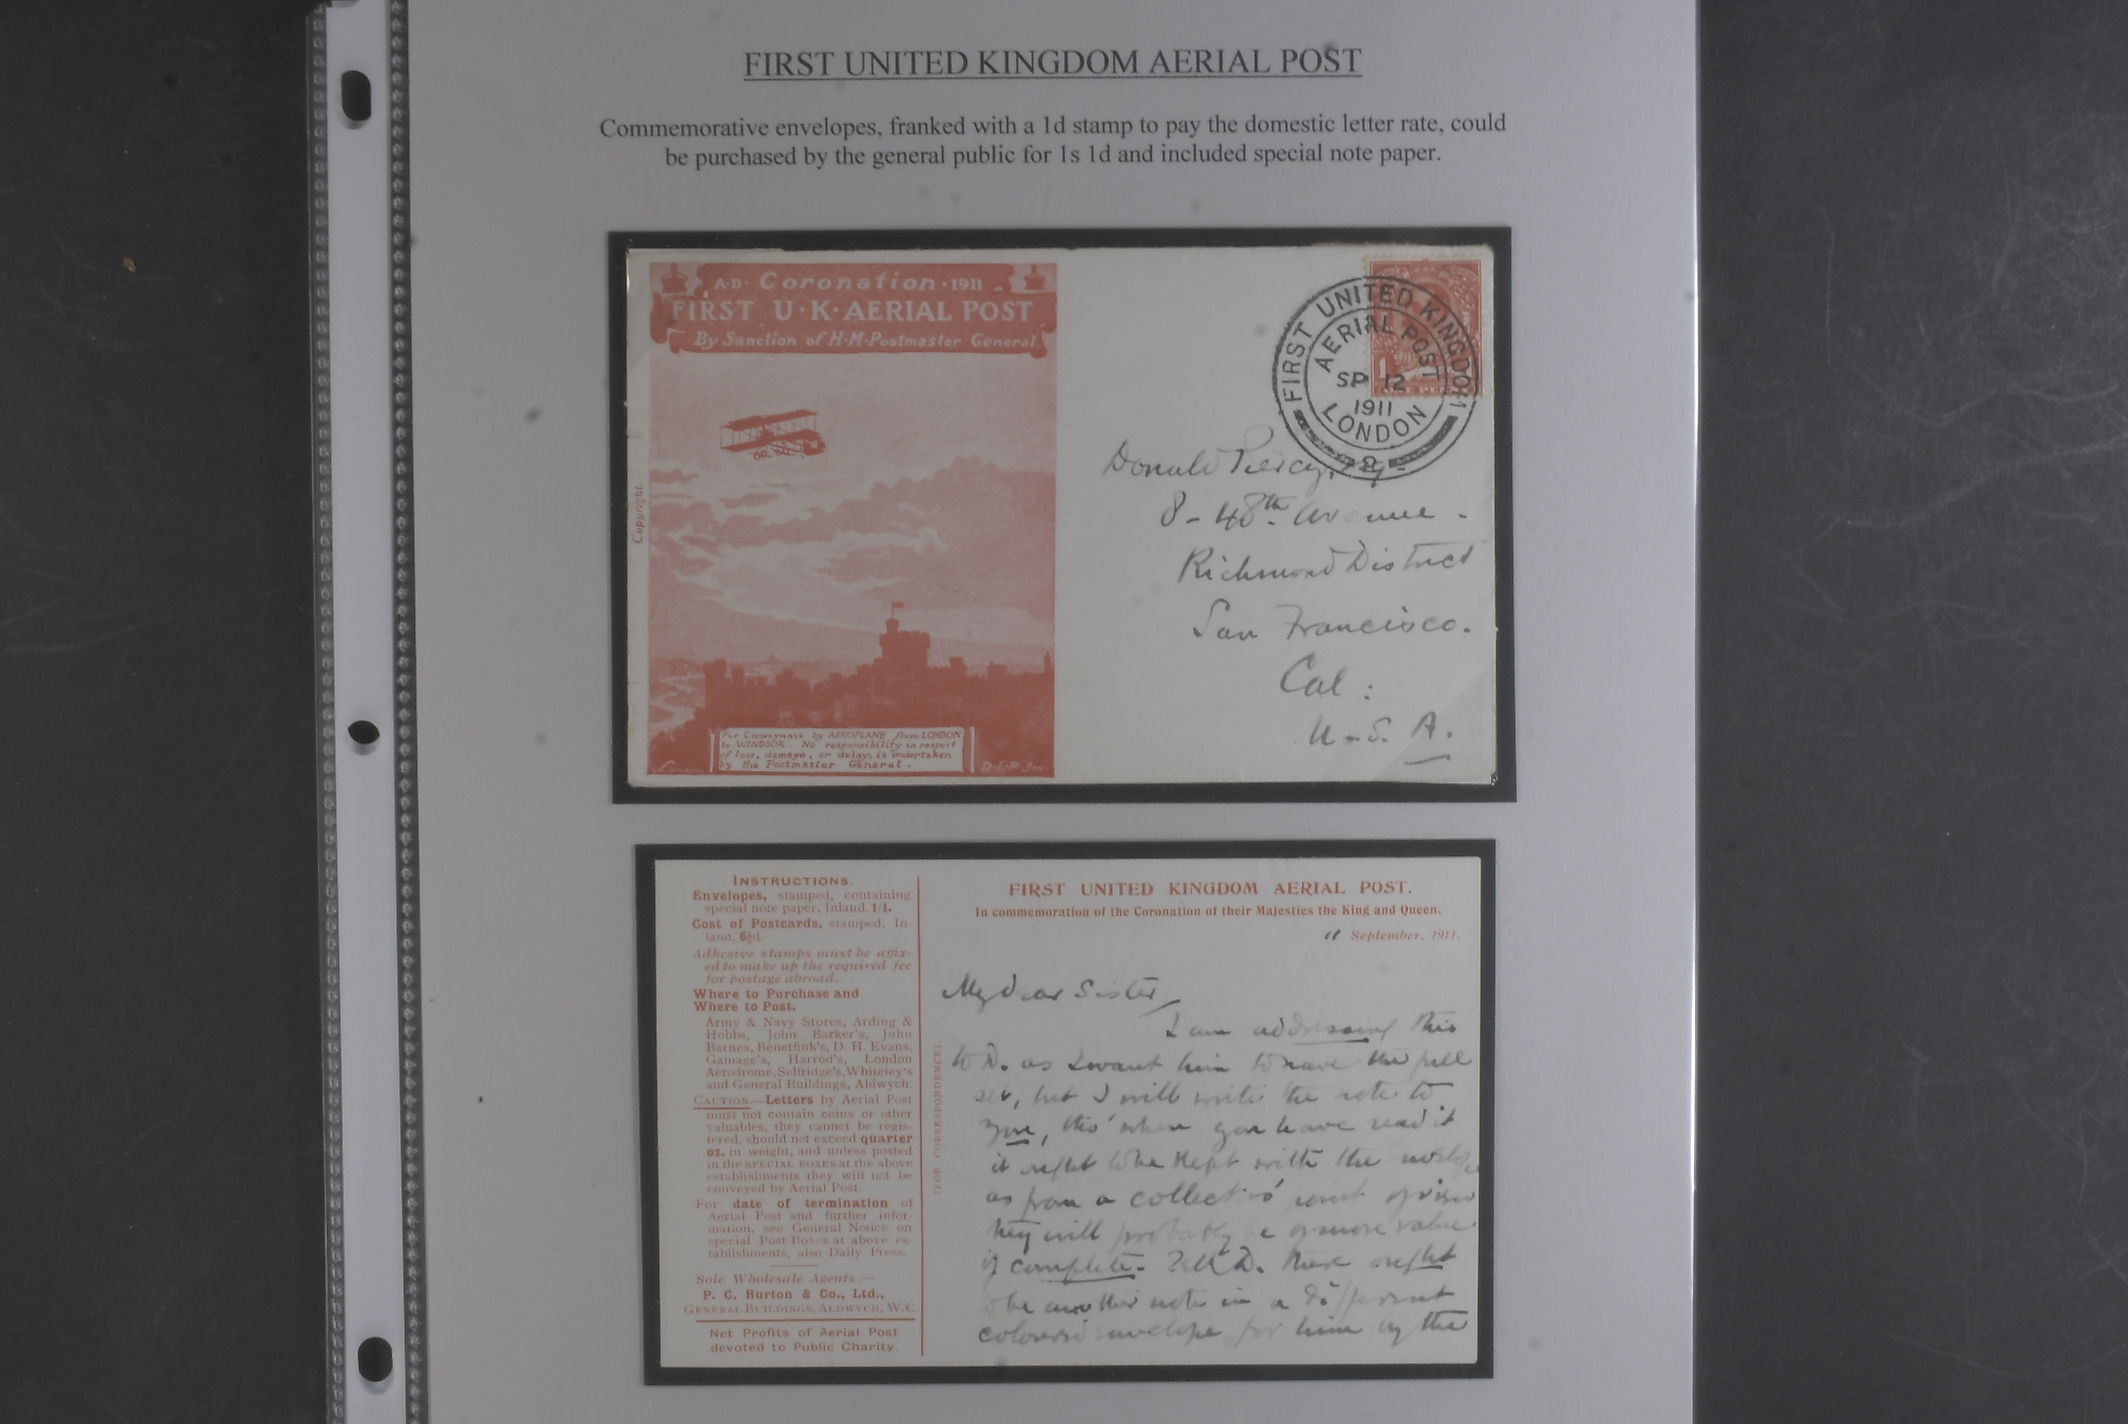 FIRST UNITED KINGDOM AERIAL POST
Commemorative envelopes, franked with a 1d stamp to pay the domestic letter rate, could
be purchased by the general public for 1s 1d and included special note paper.
A.D. Coronation · 1911
FIRST U·K·AERIAL POST
By Sanction of H·M·Postmaster General
Copyright.
For Conveyance by AEROPLANE from LONDON
to WINDSOR. No responsibility in respect
of loss, damage, or delay, is undertaken
by the Postmaster General.
FIRST UNITED KINGDOM
AERIAL POST
SP 12
1911
LONDON
2
Donald Piercy, Esq-
8-48th Avenue -
Richmond District
San Francisco.
Cal:
U.S.A.
INSTRUCTIONS.
Envelopes, stamped, containing
special note paper, Inland, 1/1.
Cost of Postcards, stamped, In-
land, 6½d.
Adhesive stamps must be affix-
ed to make up the required fee
for postage abroad.
Where to Purchase and
Where to Post.
Army & Navy Stores, Arding &
Hobbs, John Barker's, John
Barnes, Benetfink's, D. H. Evans,
Gamage's, Harrod's, London
Aerodrome, Selfridge's, Whiteley's
and General Buildings, Aldwych.
CAUTION.—Letters by Aerial Post
must not contain coins or other
valuables, they cannot be regis-
tered, should not exceed quarter
oz. in weight, and unless posted
in the SPECIAL BOXES at the above
establishments they will not be
conveyed by Aerial Post.
For date of termination of
Aerial Post and further infor-
mation, see General Notice on
special Post Boxes at above es-
tablishments, also Daily Press.
Sole Wholesale Agents:—
P. C. Burton & Co., Ltd.,
GENERAL BUILDINGS, ALDWYCH, W.C.
Net Profits of Aerial Post
devoted to Public Charity.
(FOR CORRESPONDENCE).
FIRST UNITED KINGDOM AERIAL POST.
In commemoration of the Coronation of their Majesties the King and Queen.
11 September, 1911.
My dear Sister,
I am addressing this
to D. as I want him to have the full
set, but I will write the note to
you, tho' when you have read it
it ought to be kept with the
as from a collector's point of view
they will probably be of more value
if complete. Tell D. there ought
to be another note in a different
colored envelope for him by the